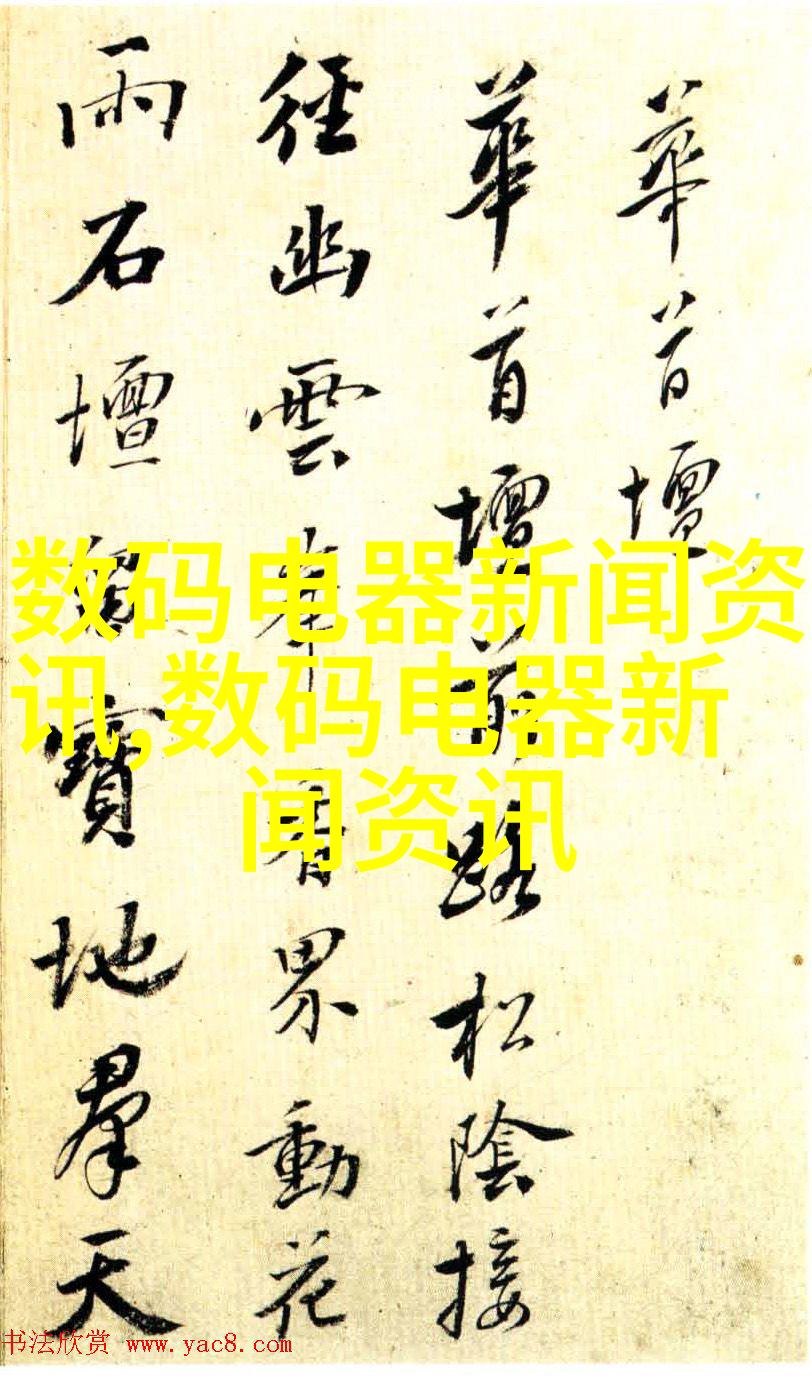 華首壇
華首壇前路松陰接
徑幽雲香界動花
雨石壇留寶地羣天
数码电器新闻资
讯,数码电器新
闻资讯
书法欣赏 www.yac8.com